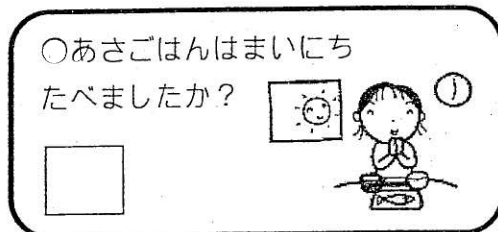 ○あさごはんはまいにち
たべましたか？